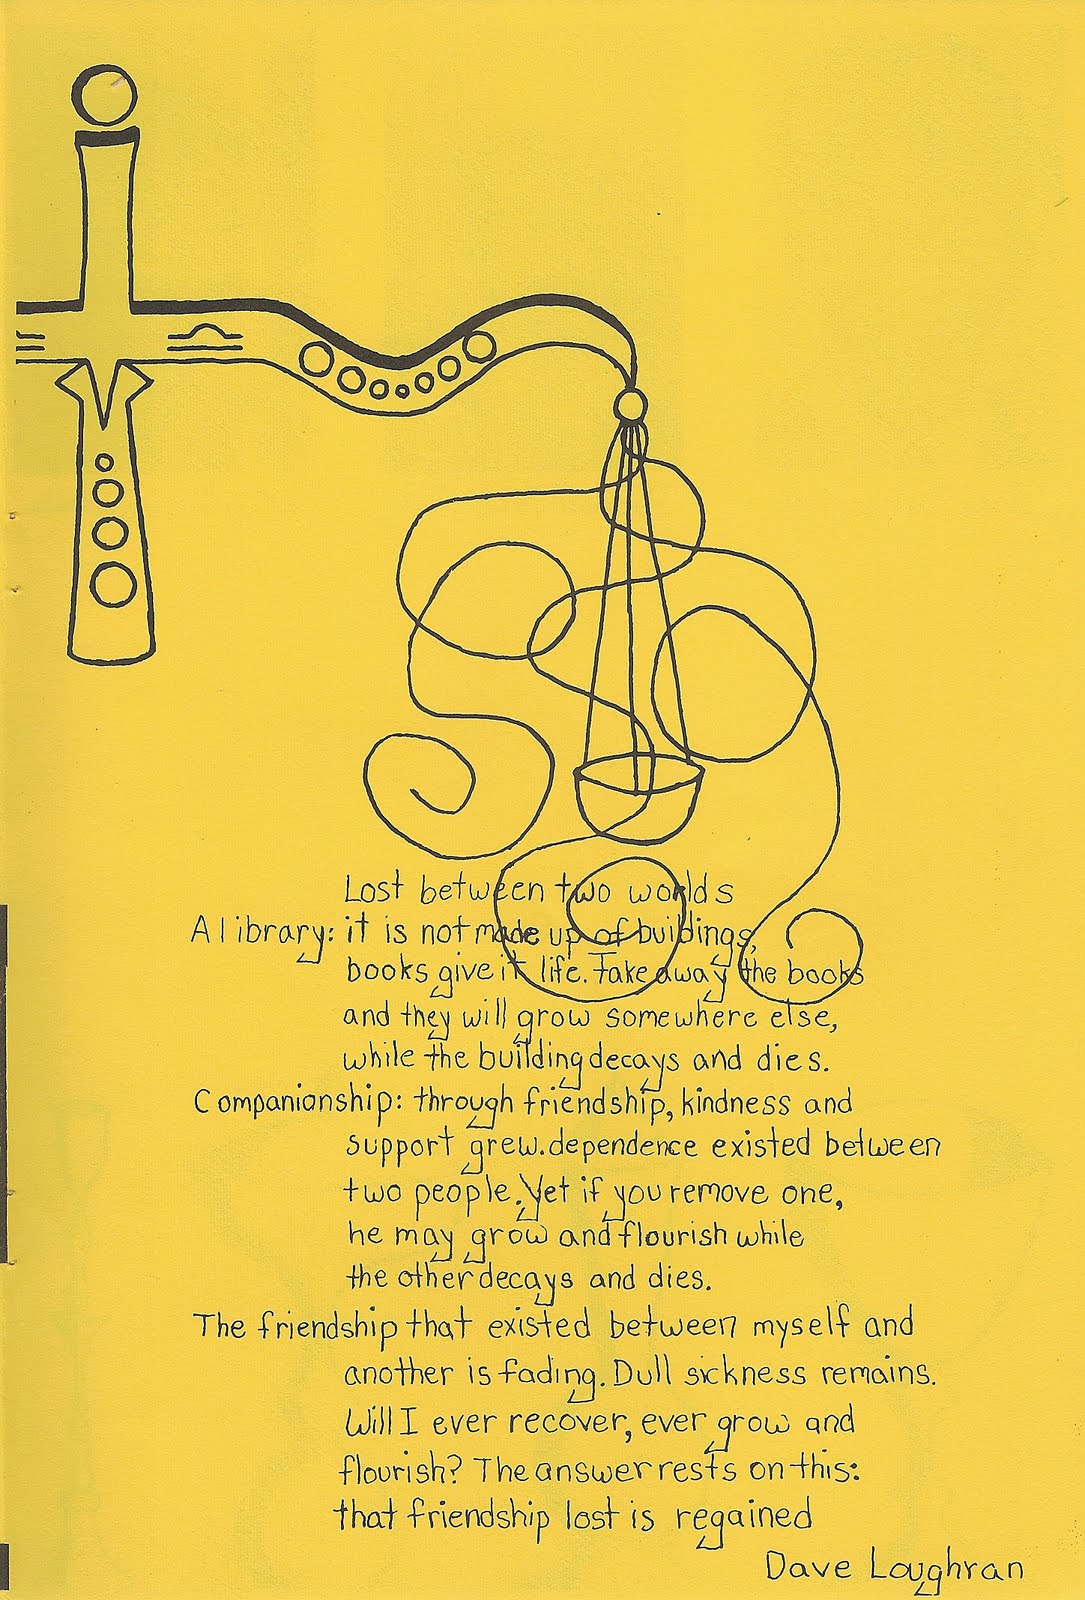 Lost between two worlds
A library: it is not made up of buildings,
books give it life. Take away the books
and they will grow somewhere else,
while the building decays and dies.
Companionship: through friendship, kindness and
support grew. dependence existed between
two people. Yet if you remove one,
he may grow and flourish while
the other decays and dies.
The friendship that existed between myself and
another is fading. Dull sickness remains.
Will I ever recover, ever grow and
flourish? The answer rests on this:
that friendship lost is regained
Dave Loughran